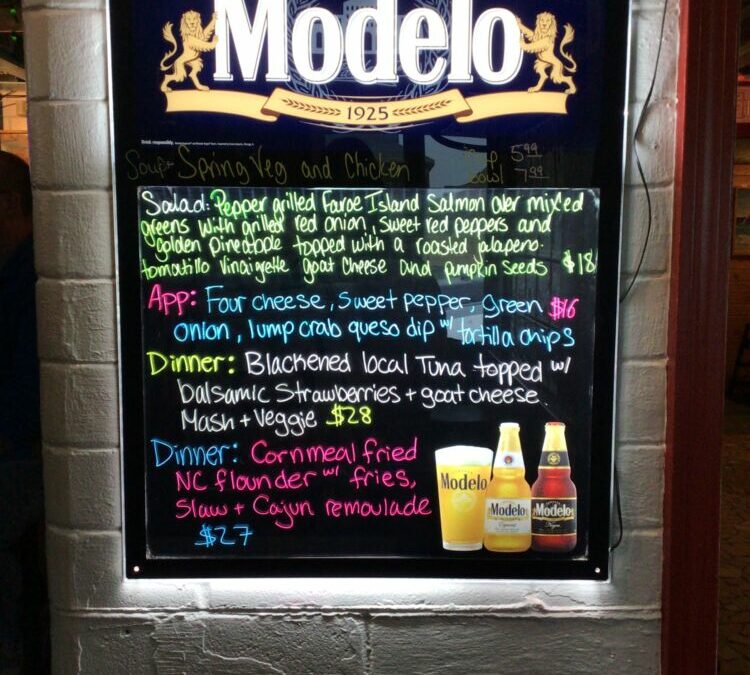 Modelo
1925
Drink responsibly.
Soup: Spring Veg and Chicken 5.99
Bowl 7.99
Salad: Pepper grilled Faroe Island Salmon over mixed
greens with grilled red onion, sweet red peppers and
golden pineapple topped with a roasted jalapeno.
tomatillo vinaigrette goat cheese and pumpkin seeds $18
App: Four cheese, sweet pepper, green $16
onion, lump crab queso dip w/ tortilla chips
Dinner: Blackened local Tuna topped w/
balsamic Strawberries + goat cheese.
Mash + Veggie $28
Dinner: Cornmeal fried
NC flounder w/ fries,
Slaw + Cajun remoulade
$27
Modelo
Modelo
Especial
Modelo
Negra